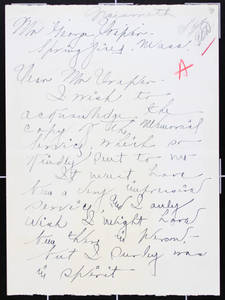 Nazareth
Mr George Draper.
Springfield, Mass.
Dear Mr Draper.
A
I wish to
acknowledge the
copy of the Memorial
Service, which so
kindly sent to me
It must have
been a very impressive
service, & I only
wish I might have
been there in person.
but I surely was
in spirit